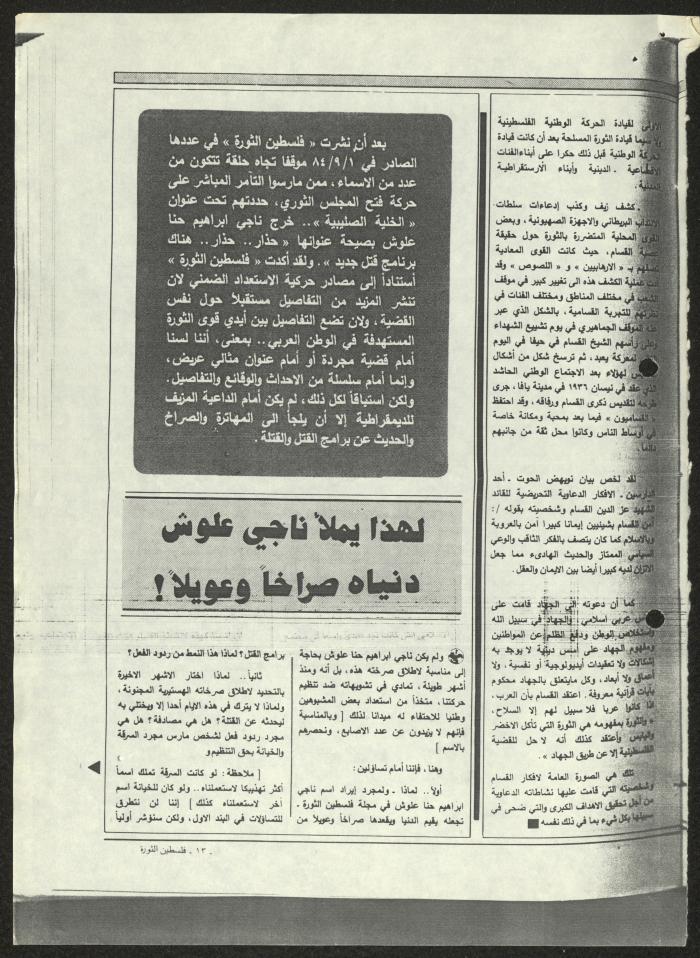 لقيادة الحركة الوطنية الفلسطينية
سيما قيادة الثورة المسلحة بعد أن كانت قيادة
الوطنية قبل ذلك حكرا على أبناء الفئات
ـ الدينية وأبناء الارستقراطية
ـ كشف زيف وكذب إدعاءات سلطات
البريطاني والاجهزة الصهيونية ، وبعض
المحلية المتضررة بالثورة حول حقيقة
القسام ، حيث كانت القوى المعادية
بـ « الارهابيين » و « اللصوص » وقد
عملية الكشف هذه الى تغيير كبير في موقف
في مختلف المناطق ومختلف الفئات في
للتجربة القسامية ، بالشكل الذي عبر
الموقف الجماهيري في يوم تشييع الشهداء
رأسهم الشيخ القسام في حيفا في اليوم
لمعركة يعبد ، ثم ترسخ شكل من أشكال
لهؤلاء بعد الاجتماع الوطني الحاشد
عقد في نيسان ١٩٣٦ في مدينة يافا ، جرى
لتقديس ذكرى القسام ورفاقه ، وقد احتفظ
« القساميون » فيما بعد بمحبة ومكانة خاصة
في أوساط الناس وكانوا محل ثقة من جانبهم
دائما .
لقد لخص بيان نويهض الحوت ـ أحد
الدارسين ـ الافكار الدعاوية التحريضية للقائد
الشهيد عز الدين القسام وشخصيته بقوله /:
آمن القسام بشيئين إيمانا كبيرا آمن بالعروبة
وبالاسلام كما كان يتصف بالفكر الثاقب والوعي
السياسي الممتاز والحديث الهادىء مما جعل
الاتزان لديه كبيرا أيضا بين الايمان والعقل .
كما أن دعوته الى الجهاد قامت على
عربي اسلامي . والجهاد في سبيل الله
واستخلاص الوطن ودفع الظلم عن المواطنين
ومفهوم الجهاد على أسس دينية لا يوجد به
إشكالات ولا تعقيدات أيديولوجية أو نفسية ، ولا
أعماق ولا أبعاد ، وكل مايتعلق بالجهاد محكوم
بآيات قرآنية معروفة . اعتقد القسام بأن العرب ،
إذا كانوا عربا فلا سبيل لهم إلا السلاح ،
« والثورة بمفهومه هي الثورة التي تأكل الاخضر
واليابس وأعتقد كذلك أنه لا حل للقضية
الفلسطينية إلا عن طريق الجهاد » .
تلك هي الصورة العامة لافكار القسام
وشخصيته التي قامت عليها نشاطاته الدعاوية
من أجل تحقيق الاهداف الكبرى والتي ضحى في
سبيلها بكل شيء بما في ذلك نفسه
بعد أن نشرت « فلسطين الثورة » في عددها
الصادر في ٨٤/٩/١ موقفا تجاه حلقة تتكون من
عدد من الاسماء ، ممن مارسوا التآمر المباشر على
حركة فتح المجلس الثوري ، حددتهم تحت عنوان
« الخلية الصليبية » .. خرج ناجي ابراهيم حنا
علوش بصيحة عنوانها « حذار .. حذار .. هناك
برنامج قتل جديد » . ولقد أكدت « فلسطين الثورة »
أستناداً إلى مصادر حركية الاستعداد الضمني لان
تنشر المزيد من التفاصيل مستقبلاً حول نفس
القضية ، ولان تضع التفاصيل بين أيدي قوى الثورة
المستهدفة في الوطن العربي .. بمعنى ، أننا لسنا
أمام قضية مجردة أو أمام عنوان مثالي عريض ،
وإنما أمام سلسلة من الاحداث والوقائع والتفاصيل .
ولكن استباقاً لكل ذلك ، لم يكن أمام الداعية المزيف
للديمقراطية إلا أن يلجأ الى المهاترة والصراخ
والحديث عن برامج القتل والقتلة .
لهذا يملأ ناجي علوش
دنياه صراخاً وعويلاً !
ولم يكن ناجي ابراهيم حنا علوش بحاجة
إلى مناسبة لاطلاق صرخته هذه ، بل أنه ومنذ
أشهر طويلة ، تمادى في تشويهاته ضد تنظيم
حركتنا ، متخذاً من استعداد بعض المشبوهين
وطنيا للاحتفاء له ميدانا لذلك [ وبالمناسبة
فإنهم لا يزيدون عن عدد الاصابع ، ونحصرهم
بالاسم ]
وهنا ، فإننا أمام تساؤلين :
أولا .. لماذا ـ ولمجرد إيراد اسم ناجي
ابراهيم حنا علوش في مجلة فلسطين الثورة ـ
نجعله يقيم الدنيا ويقعدها صراخاً وعويلاً من
برامج القتل ؟ لماذا هذا النمط من ردود الفعل ؟
ثانياً .. لماذا اختار الاشهر الاخيرة
بالتحديد لاطلاق صرخاته الهستيرية المجنونة ،
ولماذا لا يترك في هذه الايام أحدا إلا ويختلي به
ليحدثه عن القتلة ؟ هل هي مصادفة ؟ هل هي
مجرد ردود فعل لشخص مارس مجرد السرقة
والخيانة بحق التنظيم و
[ ملاحظة : لو كانت السرقة تملك اسماً
أكثر تهذيبكا لاستعملناه .. ولو كان للخيانة اسم
آخر لاستعملناه كذلك ] إننا لن نتطرق
للتساؤلات في البند الاول ، ولكن سنؤشر أولياً
ـ ١٣ ـ فلسطين الثورة